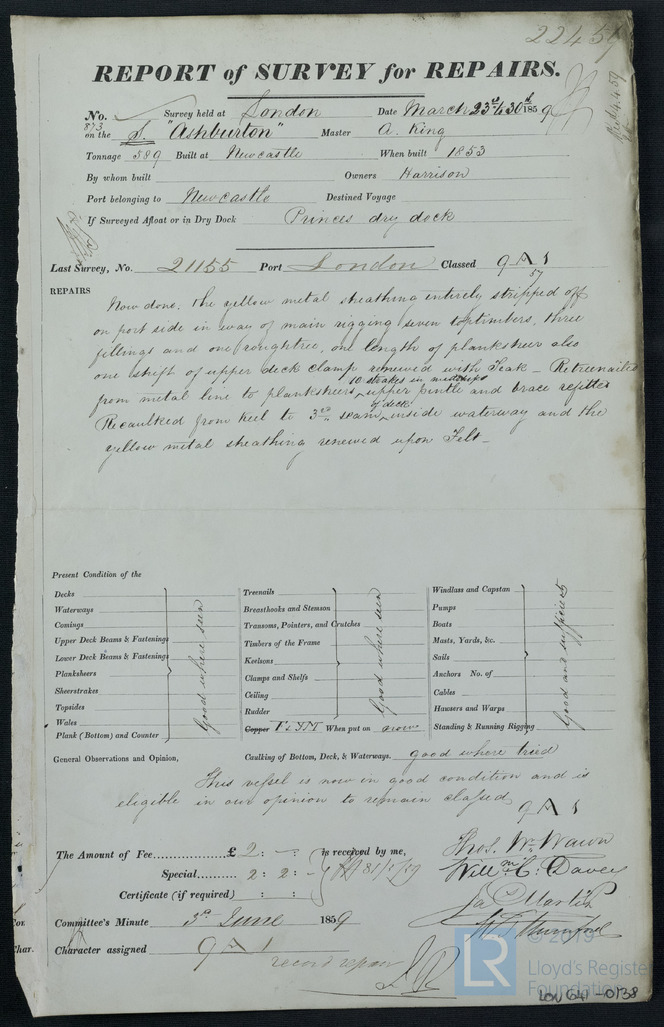 22457
REPORT of SURVEY for REPAIRS.
No. Survey held at London Date March 23rd & 30th 1859
873
on the S. "Ashburton" Master A. King
Tonnage 589 Built at Newcastle When built 1853
By whom built Owners Harrison
Port belonging to Newcastle Destined Voyage
If Surveyed Afloat or in Dry Dock Princes dry dock
Last Survey, No. 21155 Port London Classed 9 A 1
57
REPAIRS
Now done. The yellow metal sheathing entirely stripped off
on port side in way of main rigging seven toptimbers, three
fillings and one roughtree, one length of planksheer also
one shift of upper deck clamp renewed with Teak _ Retreenailed
10 strakes in midships
from metal line to planksheers, upper pintle and brace refitted
of deck
Recaulked from keel to 3rd seam, inside waterway and the
yellow metal sheathing renewed upon Felt _
Present Condition of the
Decks
Waterways
Comings
Upper Deck Beams & Fastenings
Lower Deck Beams & Fastenings
Planksheers
Sheerstrakes
Topsides
Wales
Plank (Bottom) and Counter
Good where seen
Treenails
Breasthooks and Stemson
Transoms, Pointers, and Crutches
Timbers of the Frame
Keelsons
Clamps and Shelfs
Ceiling
Rudder
Good where seen
Copper F & YM When put on now
Windlass and Capstan
Pumps
Boats
Masts, Yards, &c.
Sails
Anchors No. of
Cables
Hawsers and Warps
Standing & Running Rigging
Good and sufficient
General Observations and Opinion, Caulking of Bottom, Deck, & Waterways. good where tried
This vessel is now in good condition and is
eligible in our opinion to remain classed 9 A 1
The Amount of Fee £ 2: - is received by me,
Special 2: 2: -
Certificate (if required) : :
Thos. Wm. Wawn
Willm. C. Davey
Ja Martin
Mumford
Committee's Minute 3rd June 1859
Character assigned 9 A 1
record repair
© 2019
LR
Lloyd's Register
Foundation
LON 641-0138